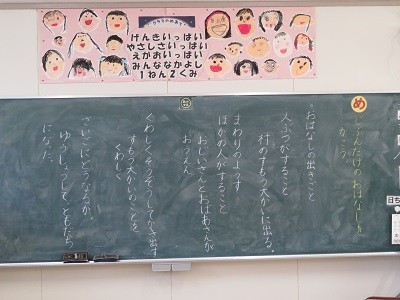 げんきいっぱい
やさしさいっぱい
えがおいっぱい
みんななかよし
1ねん2くみ
め
じぶんだけのおはなしを
かこう。
・おはなしの出きごと
人ぶつがすること
村のすもう大かいに出る。
まわりのようす
ほかの人がすること
おじいさんとおばあさんが
おうえん
くわしくそうぞうしてかき出す
すもう大かいのことを
くわしく
さいごにどうなるか。
ゆうしょうして、ともだち
になった。
日ち